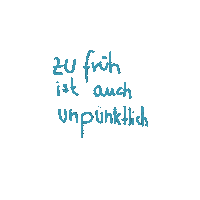 zu früh
ist auch
unpünktlich